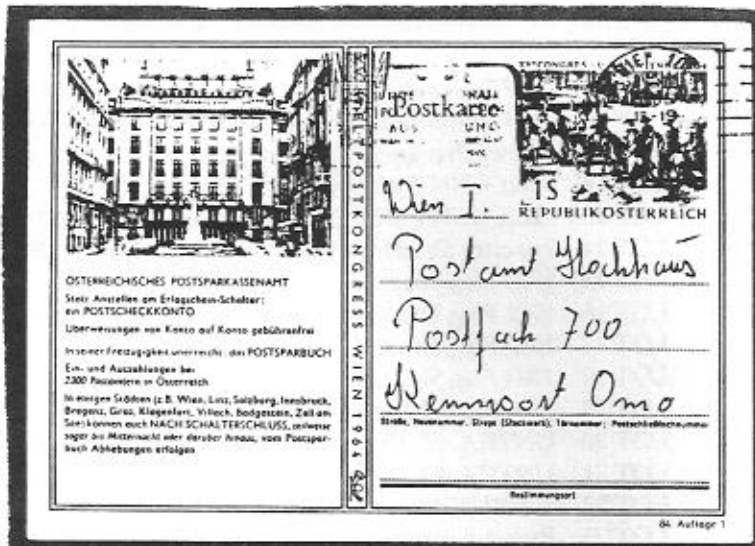 ÖSTERREICHISCHES POSTSPARKASSENAMT
Statt Anstellen am Erlagschein-Schalter:
ein POSTSCHECKKONTO
Überweisungen von Konto auf Konto gebührenfrei
In seiner Freizügigkeit unerreicht: das POSTSPARBUCH
Ein- und Auszahlungen bei
2300 Postämtern in Österreich
In einigen Städten (z. B. Wien, Linz, Salzburg, Innsbruck,
Bregenz, Graz, Klagenfurt, Villach, Badgastein, Zell am
See) können auch NACH SCHALTERSCHLUSS, teilweise
sogar bis Mitternacht oder darüber hinaus, vom Postspar-
buch Abhebungen erfolgen
XV. WELTPOSTKONGRESS WIEN 1964
Postkarte
AUS UND
15-19
1 S
REPUBLIK ÖSTERREICH
Wien I.
Postamt Hochhaus
Postfach 700
Kennwort Omo
Straße, Hausnummer, Stiege (Stockwerk), Türnummer; Postschließfachnummer
Bestimmungsort
84 Auflage 1